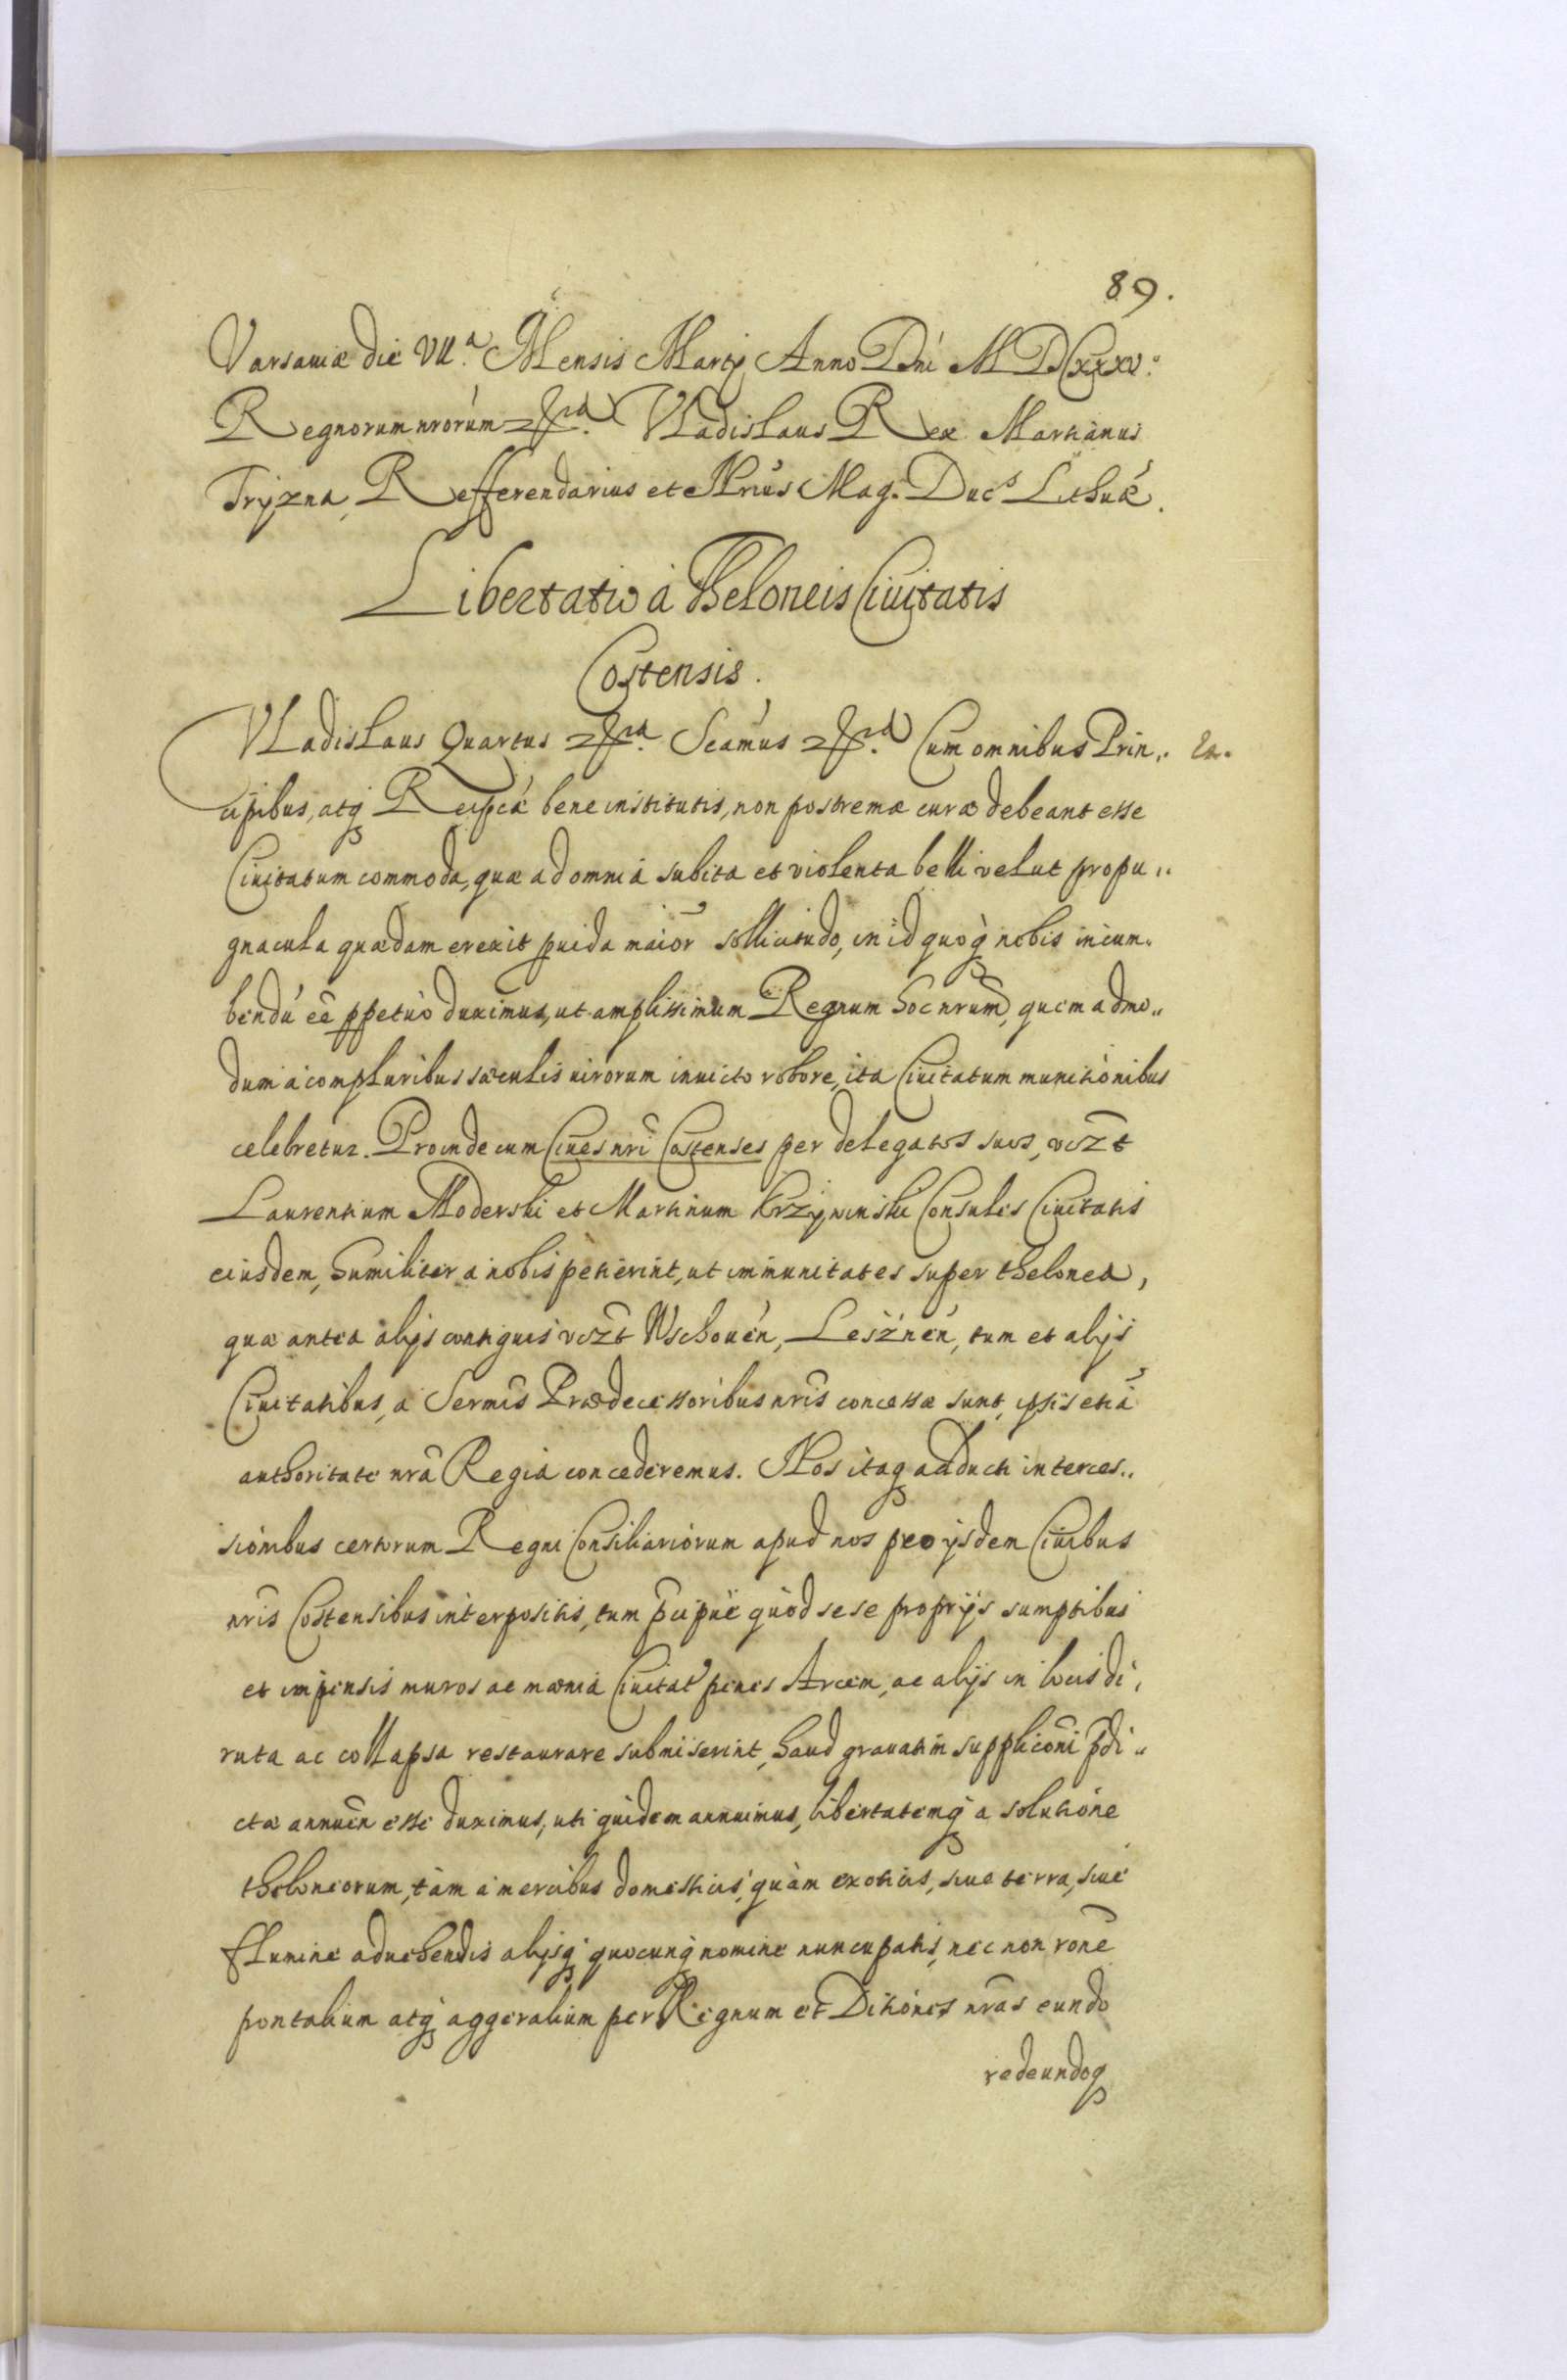 89.
Varsauiæ die VIIa. Mensis Martij Anno Dni M DCxxxv.
Regnorum nrorum etc. Vladislaus Rex Martianus
Tryzna, Refferendarius et Nrius Mag. Duc. Lithuæ.
Libertatio à Theloneis Ciuitatis
Costensis.
Vladislaus Quartus etc. Scamus etc. Cum omnibus Prin„
cipibus, atq Reipcæ bene institutis, non postremæ curæ debeant esse
Ciuitatum commoda, quæ ad omnia subita et violenta belli velut propu„
gnacula quædam erexit puida maior sollicitudo, in id quoq nobis incum„
bendú eê ppetuò duximus, ut amplissimum Regnum hoc nrum, quemadmo„
dum à compluribus sæculis uirorum inuicto robore, ita Ciuitatum munitionibus
celebretur. Proinde cum Ciues nri Costenses per delegatos suos, vczt
Laurentium Moderski et Martinum Krzywinski Consules Ciuitatis
eiusdem, humiliter a nobis petierint, ut immunitates super thelonea,
quæ antea alijs contiguis vczt Wschouen, Leśznen, tum et alijs
Ciuitatibus, a Sermis Prædecessoribus nris concessæ sunt, ipsis etiã
authoritate nra Regia concederemus. Nos itaq adducti interces„
sionibus certorum Regni Consiliariorum apud nos pro ijsdem Ciuibus
nris Costensibus interpositis, tum pcipuè quòd sese proprijs sumptibus
et impensis muros ac mænia Ciuitat penes Arcem, ac alijs in locis di„
ruta ac collapsa restaurare submiserint, haud grauatim supplicõni pdi„
ctæ annuen esse duximus, uti quidem annuimus, libertatemq a solutione
theloneorum, tàm à mercibus domesticis, quàm exoticis, siue terra, siue
flumine aduehendis alijsq quocunq nomine nuncupatis, nec non rone
pontalium atq aggeralium per Regnum et Ditiones nras eundo
redeundoq